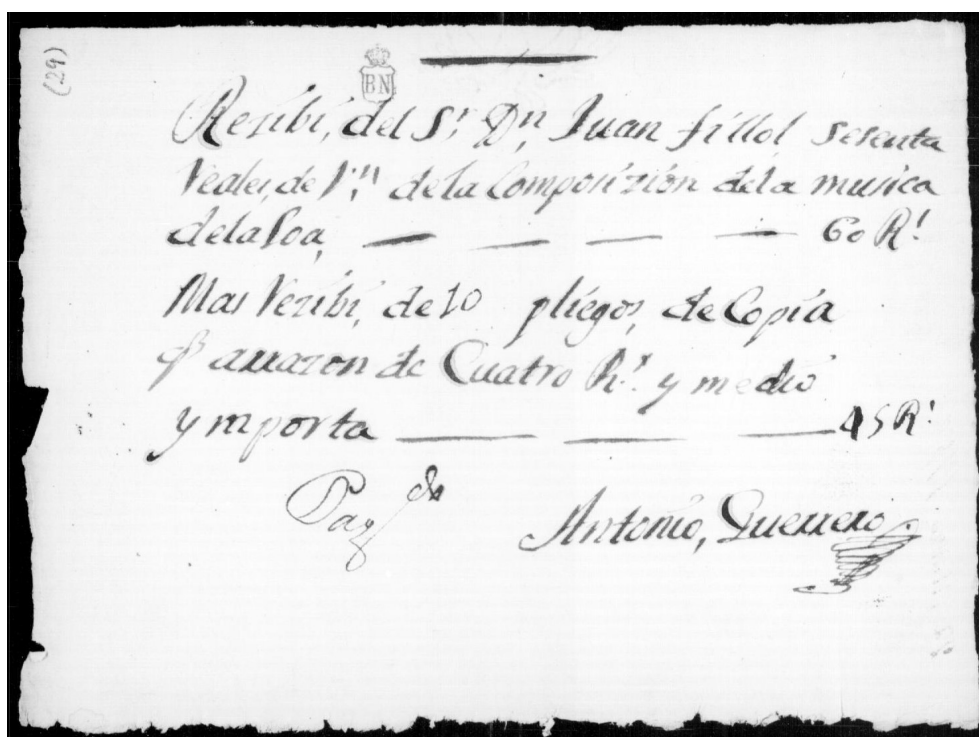 (29)
BN
Resibí, del S.r D.n Juan fillol sesenta
Reales, de V.n de la Composizion dela musica
delaloa, — — — — 60 R.s
Mas Rezibí, de 10 pliegos, de Copia
arrazon de Cuatro R.s y medio
ymporta — — — 45 R.s
Pag do
Antonio, Guerrero